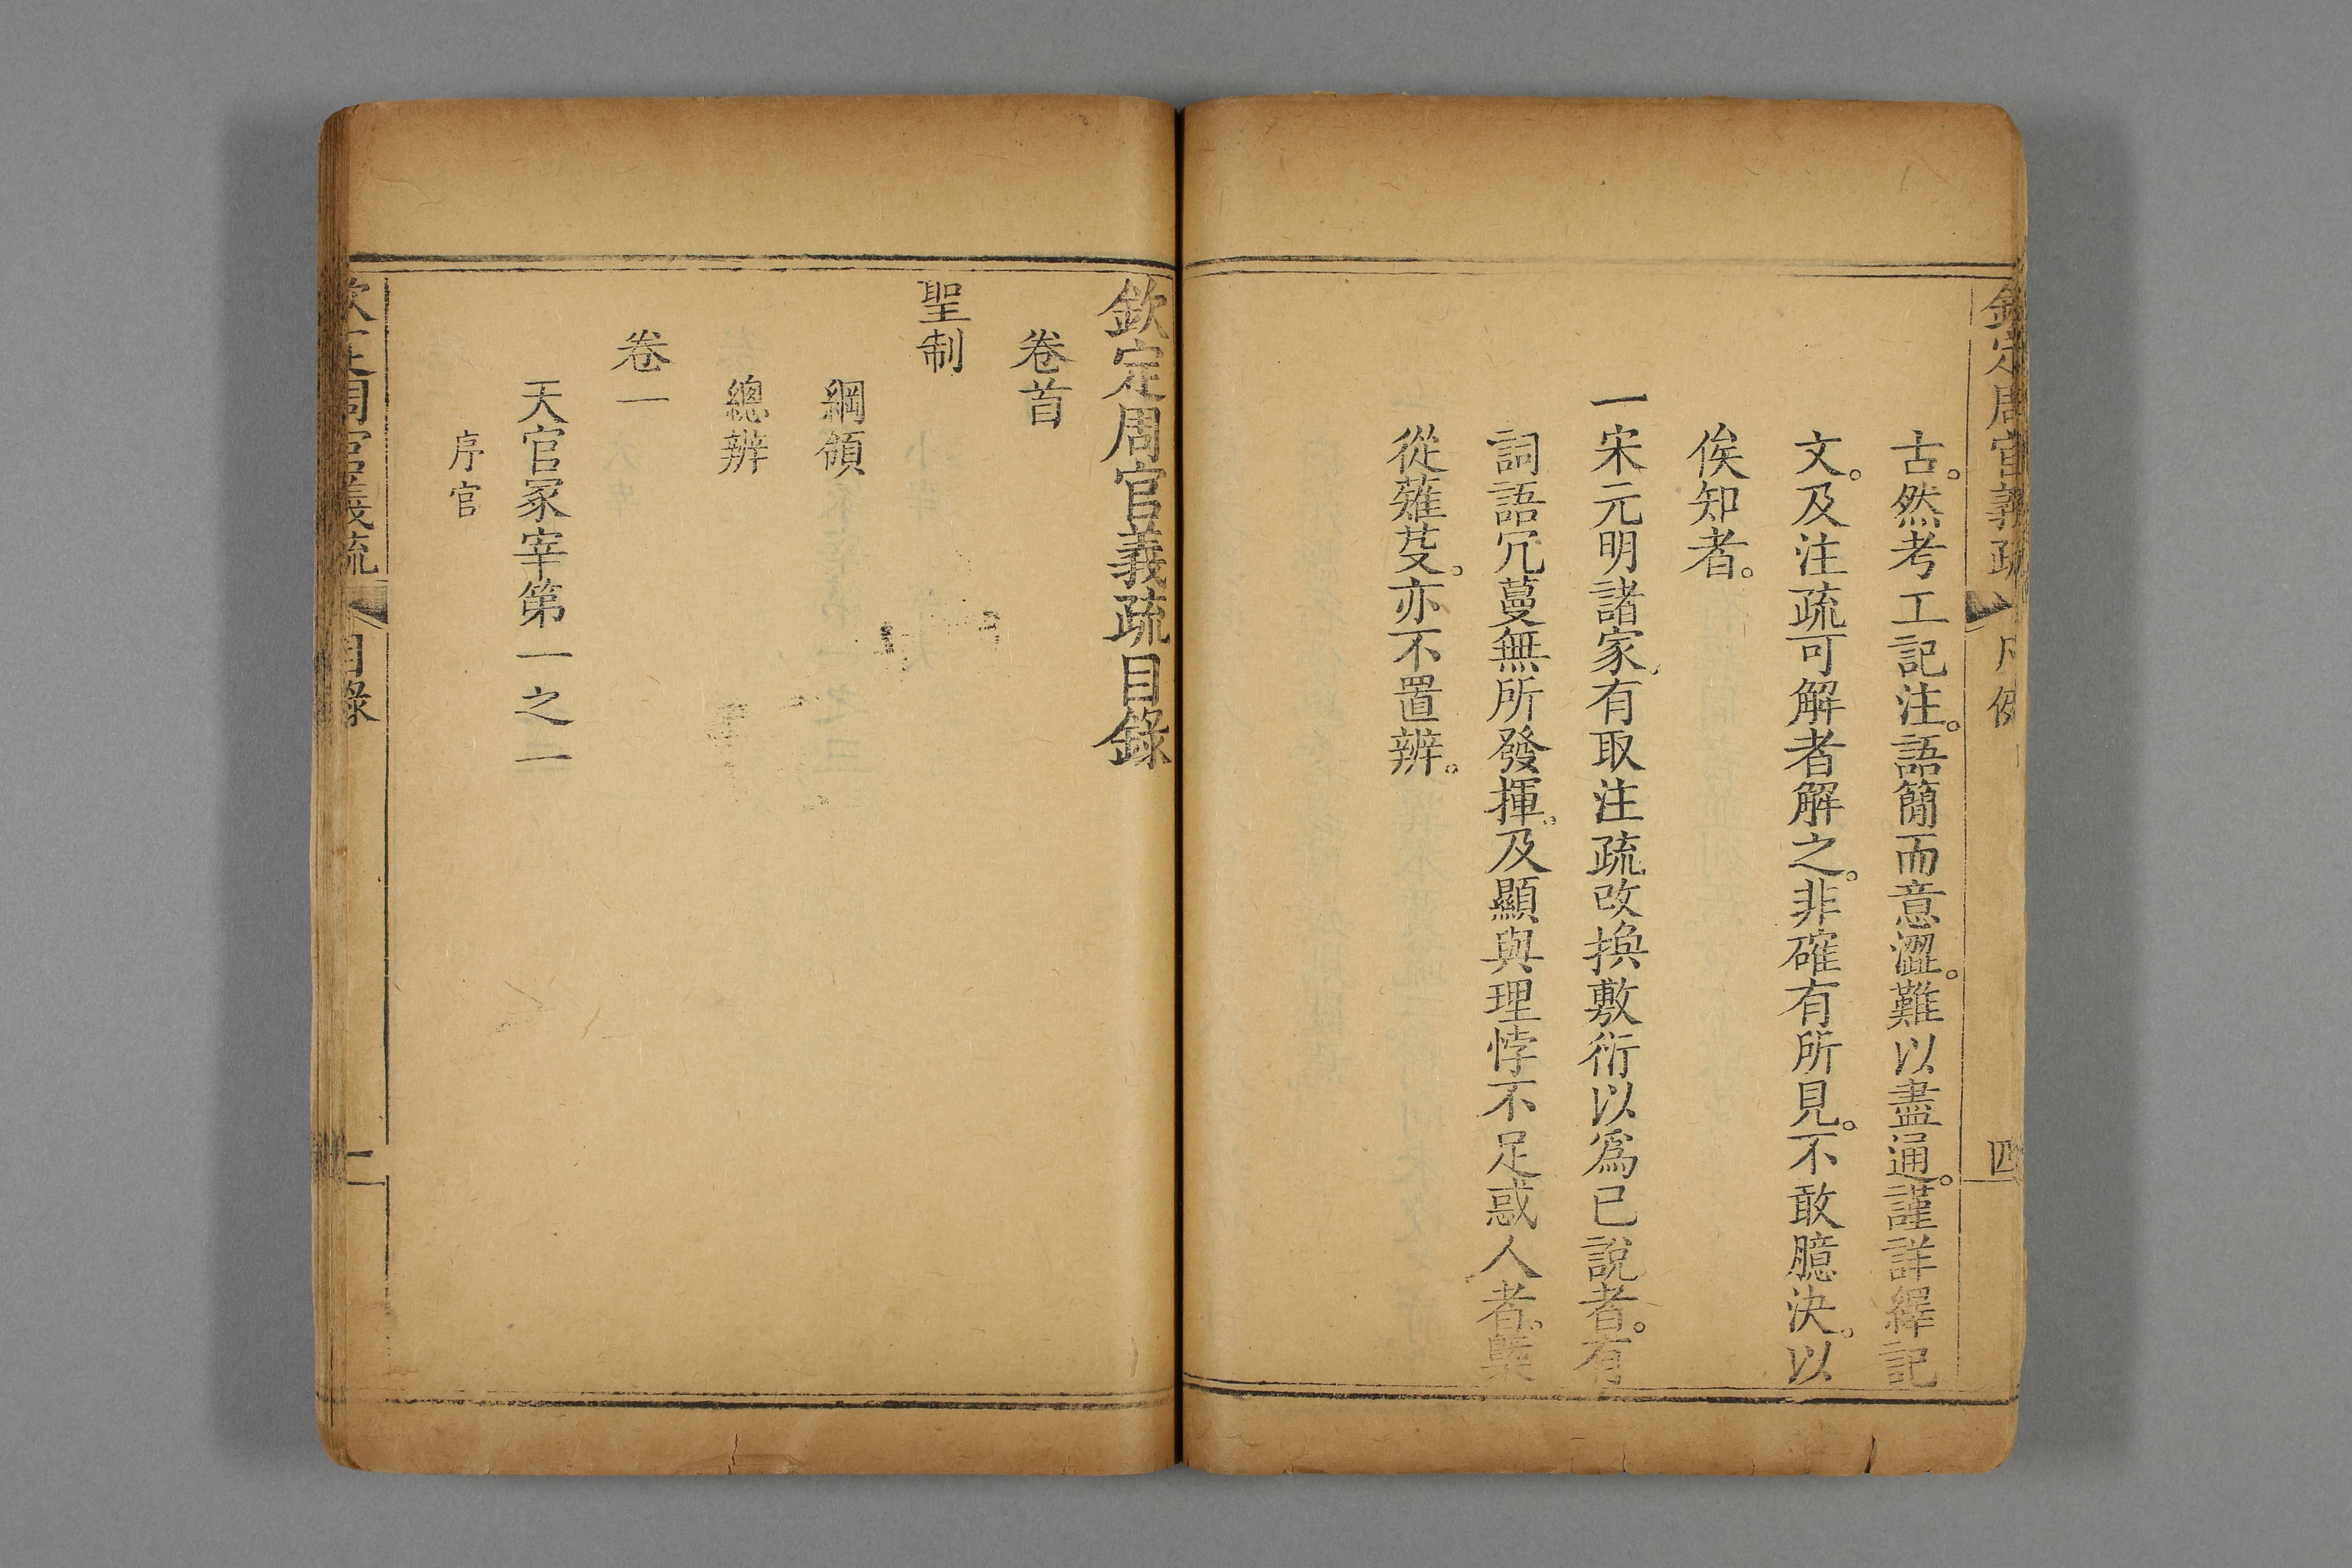 欽定周官義疏 凡例 四
古。然考工記注。語簡而意澀。難以盡通。謹詳繹記
文。及注疏可解者解之。非確有所見。不敢臆決。以
俟知者。
一宋元明諸家。有取注疏改換敷衍以爲已說者。有
詞語冗蔓無所發揮。及顯與理悖不足惑人者。槩
從薙芟。亦不置辨。
欽定周官義疏目錄
卷首
聖制
綱領
總辨
卷一
天官冢宰第一之一
序官
欽定周官義疏 目錄 一